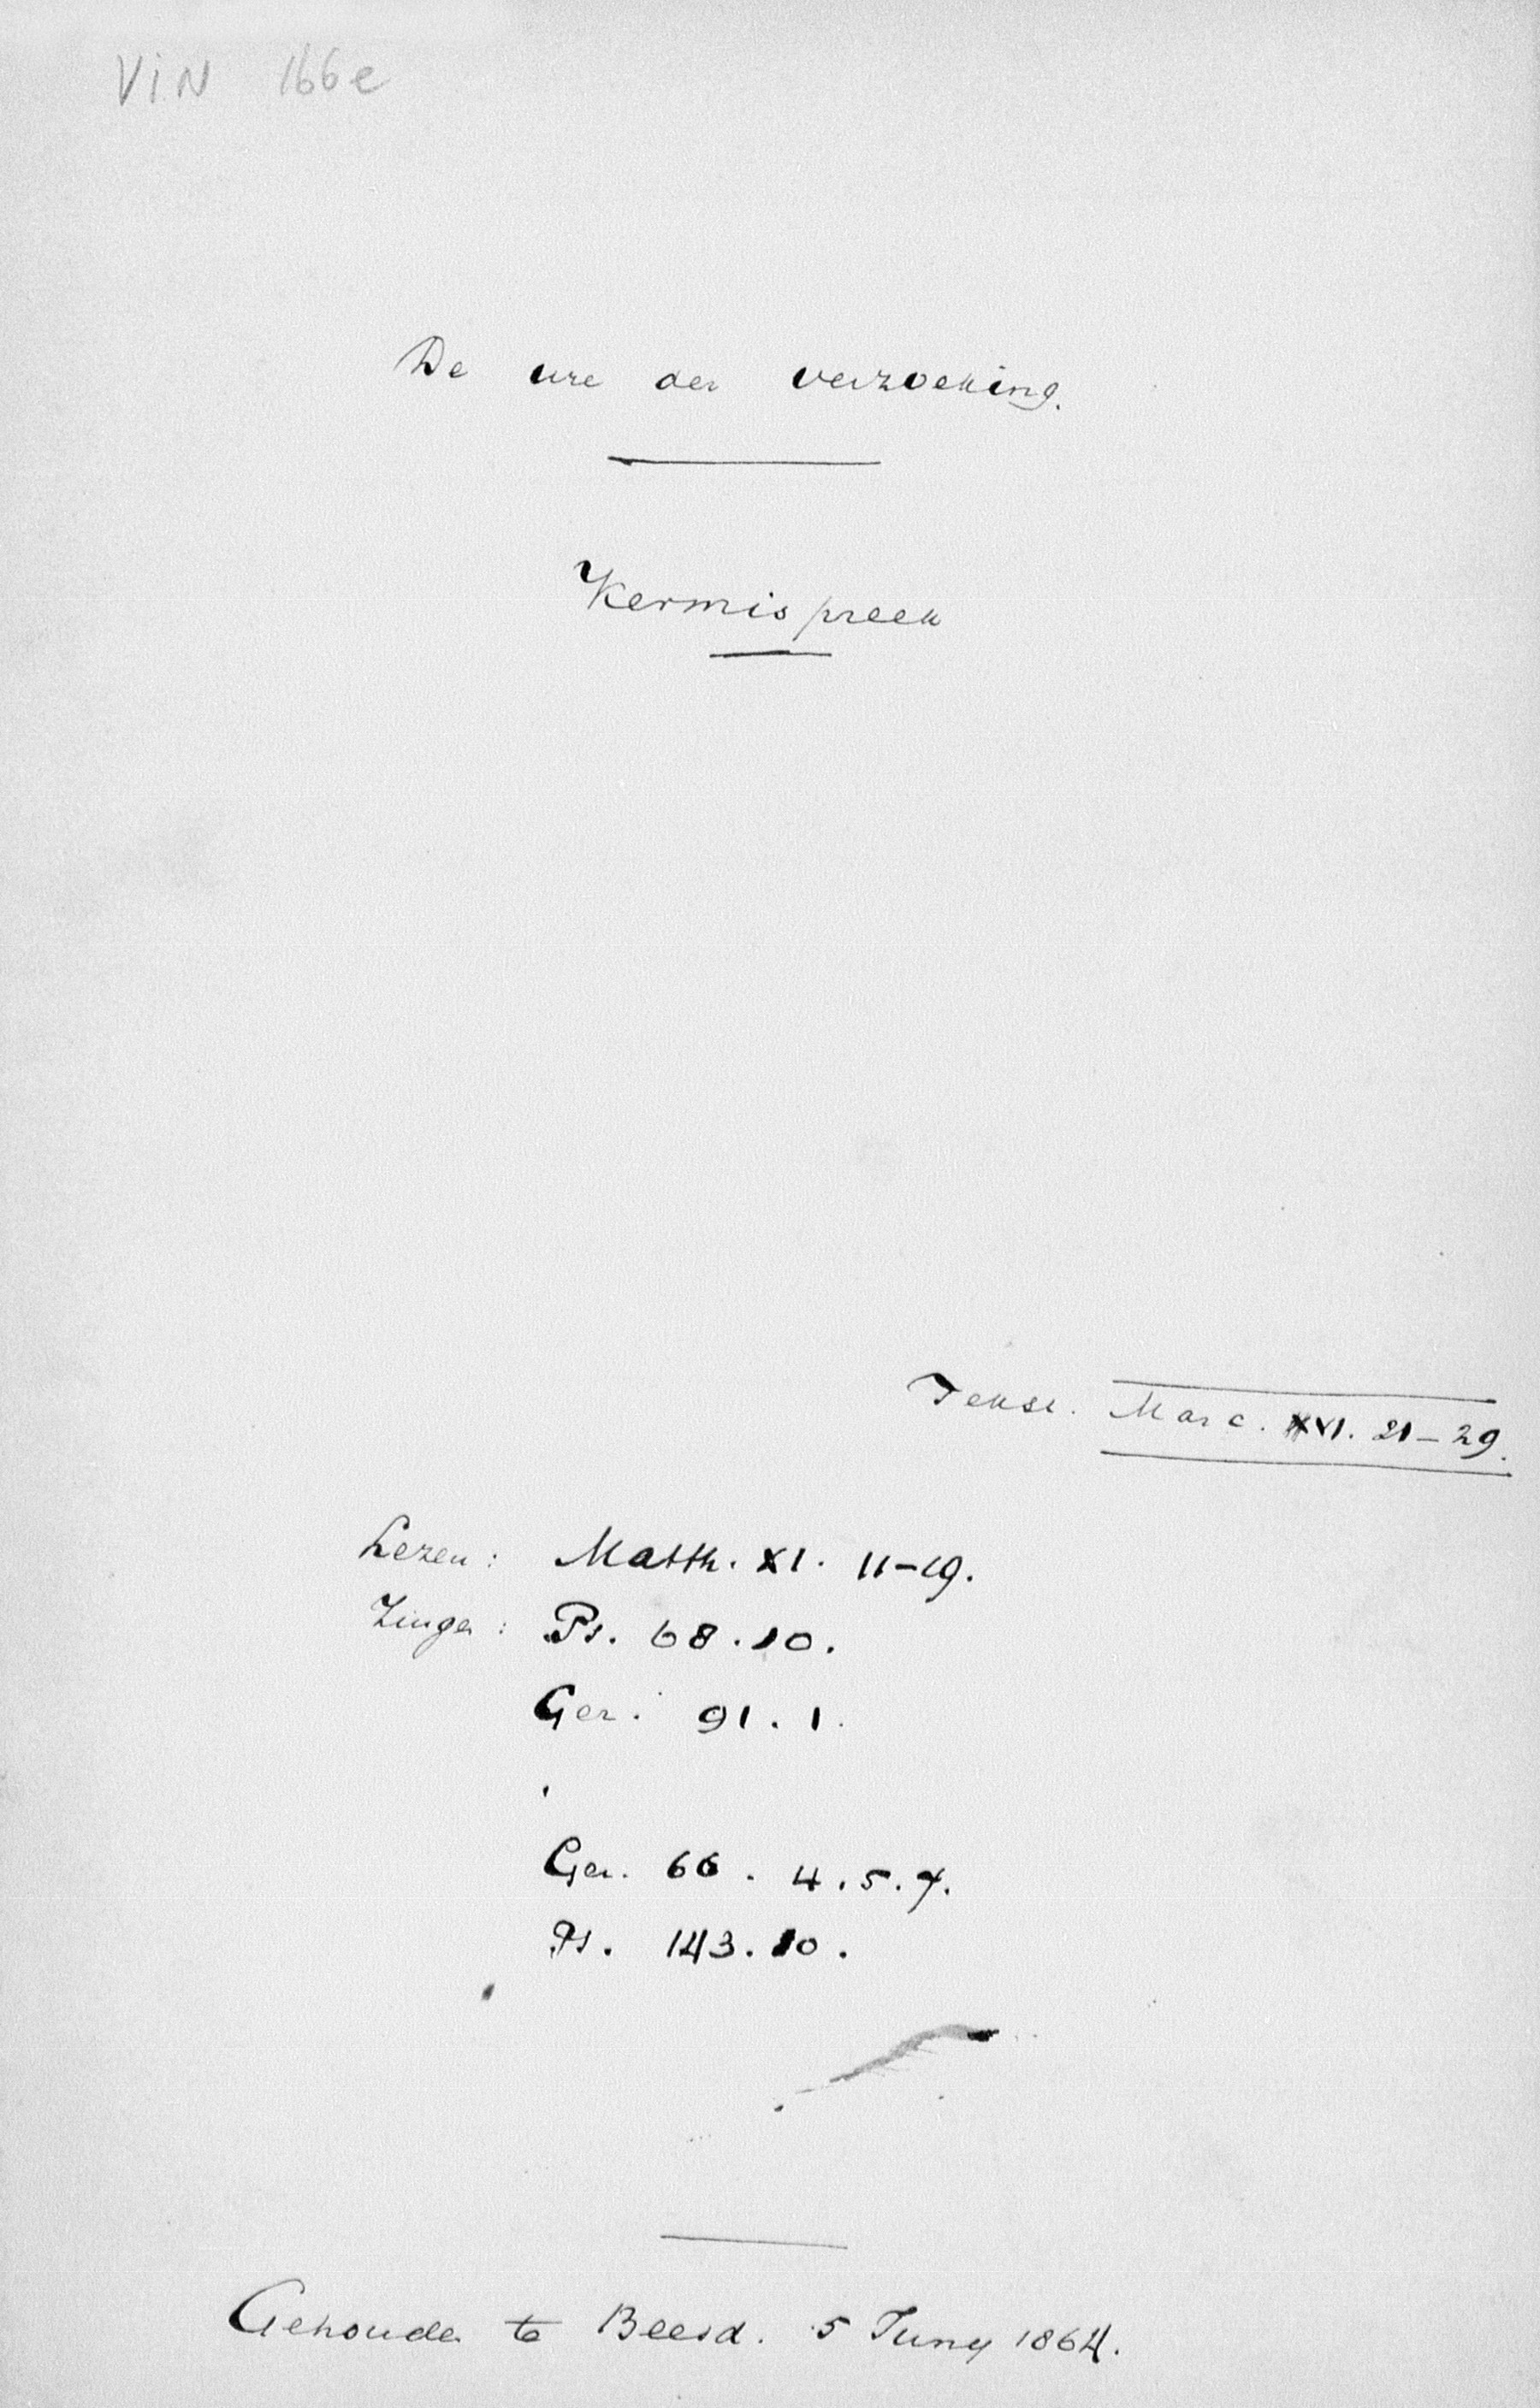 VIN 166e
De ure der verzoeking.
Kermispreek
Tekst. Marc. XVI. 21-29.
Lezen: Matth. XI. 11-19.
Zingen: Ps. 68.10.
Gez. 91.1.
Gez. 66. 4.5.7.
Ps. 143.10.
Gehouden te Beesd. 5 Juny 1864.